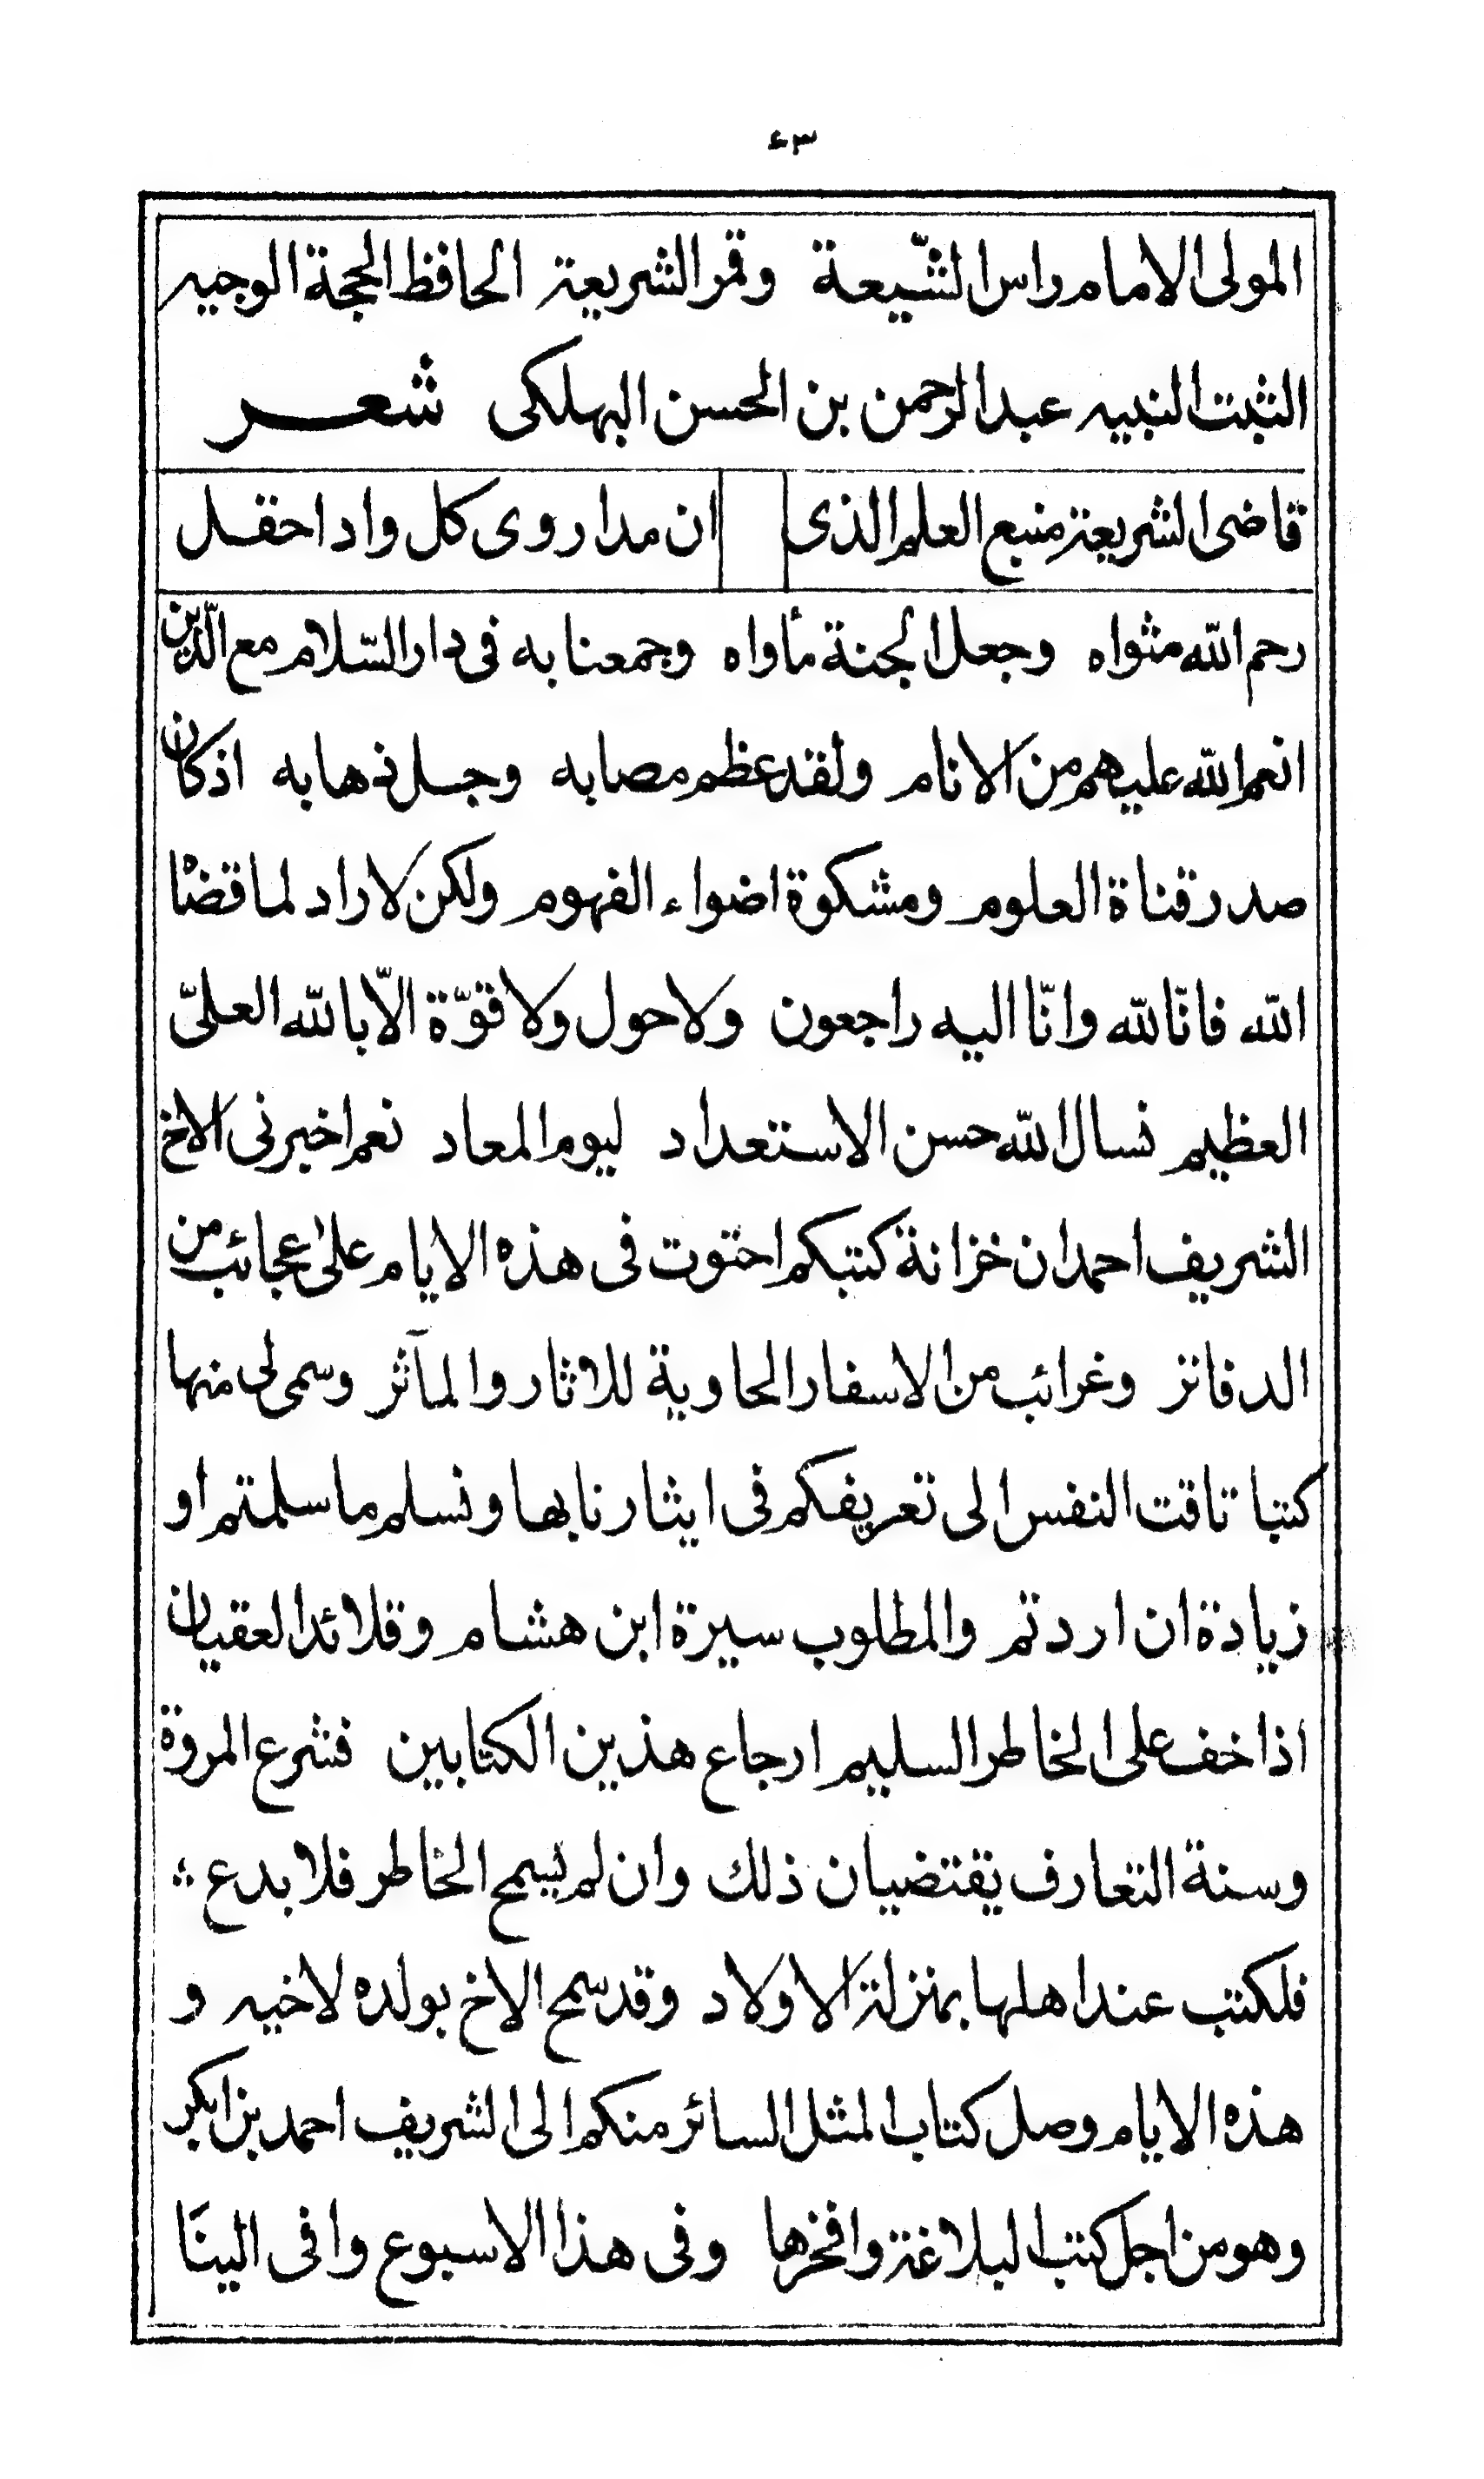 ٤٣
المولى الامام راس الشّيعة وقمر الشريعة الحافظ الحجة الوجيه
الثبت النبيه عبد الرحمن بن الحسن البهلكى شعر
قاضى الشريعة منبع العلم الذى ان مدا روى كل واد احقل
رحم الله مثواه وجعل الجنة مأواه وجمعنا به فى دار السّلام مع الّذين
انعم الله عليهم من الانام ولقد عظم مصابه وجل ذهابه اذ كان
صدر قناة العلوم ومشكوة اضواء الفهوم ولكن لا راد لما قضاه
الله فانّا لله وانّا اليه راجعون ولا حول ولا قوّة الّا بالله العلىّ
العظيم نسال الله حسن الاستعداد ليوم المعاد نعم اخبرنى الاخ
الشريف احمد ان خزانة كتبكم احتوت فى هذه الايام على عجائب من
الدفاتر وغرائب من الاسفار الحاوية للاثار والمآثر وسمى لى منها
كتبا تاقت النفس الى تعريفكم فى ايثارنا بها ونسلم ما سلمتم او
زيادة ان اردتم والمطلوب سيرة ابن هشام وقلائد العقيان
اذا خف على الخاطر السليم ارجاع هذين الكتابين فشرع المروة
وسنة التعارف يقتضيان ذلك وان لم يسمح الخاطر فلا بدع
فلكتب عند اهلها بمنزلة الاولاد وقد سمح الاخ بولده لاخيه و
هذه الايام وصل كتاب المثل السائر منكم الى الشريف احمد بن ابكر
وهو من اجل كتب البلاغة وافخرها وفى هذا الاسبوع وافى الينَا